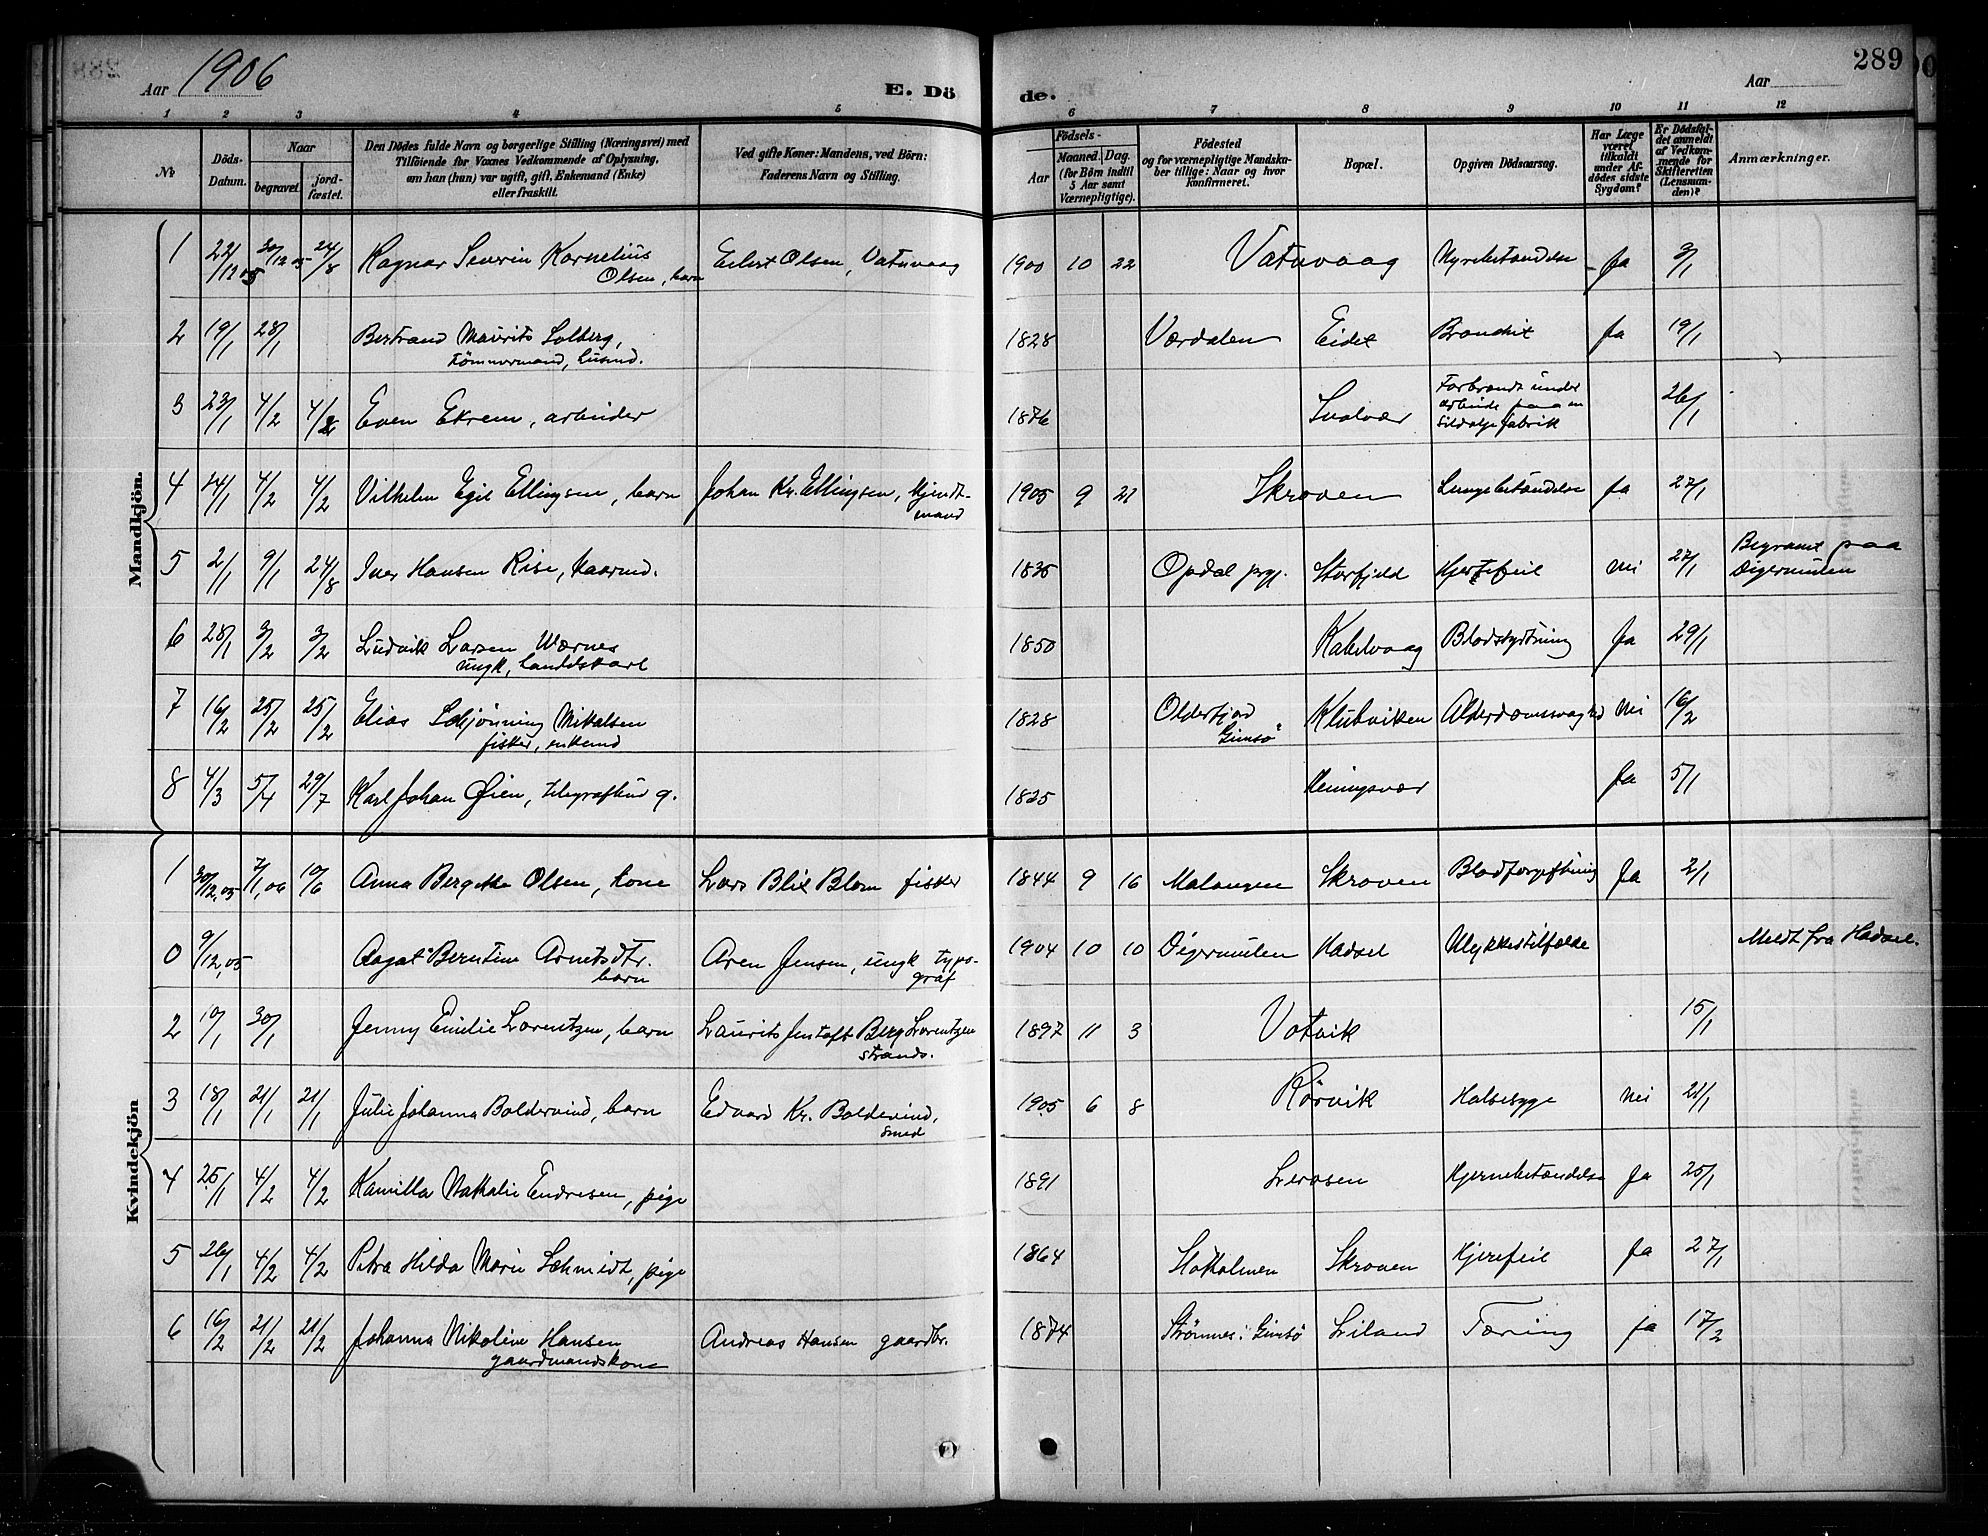 Aar 1906
E. Dö
de.
Aar
289
1 2 3 4 5 6 7 8 9 10 11 12
No
Döds-Datum.
Naar
begravet.
jord-fæstet.
Den Dödes fulde Navn og borgerlige Stilling (Næringsvei) med
Tilföiende for Voxnes Vedkommende af Oplysning,
om han (hun) var ugift, gift, Enkemand (Enke)
eller fraskilt.
Ved gifte Koner: Mandens, ved Börn:
Faderens Navn og Stilling.
Födsels-
Aar
Maaned. Dag.
(for Börn indtil
5 Aar samt
Værnepligtige).
Födested
og for værnepligtige Mandska-
ber tillige: Naar og hvor
konfirmeret.
Bopæl.
Opgiven Dödsaarsag.
Har Læge
været
tilkaldt
under Af-
dödes sidste
Sygdom?
Er Dödsfal-
det anmeldt
af Vedkom-
mende for
Skifteretten
(Lensman-
den)?
Anmærkninger.
Mandkjön.
1 22/12 05 30/12 05 24/8 Ragnar Severin Kornelius Eilert Olsen, Vatnvaag 1900 10 22 Vatnvaag Nyrebetændelse ja 3/1
Olsen, barn
2 19/1 28/1 Bertrand Maurits Solberg, 1828 Værdalen Eidet Bronchit ja 19/1
tømmermand, husmd.
3 23/1 4/2 4/2 Even Ekrem, arbeider 1876 Svolvær Forbrændt under
arbeide paa en
sildoljefabrik 26/1
4 14/1 4/2 4/2 Vilhelm Egil Ellingsen, barn Johan Kr. Ellingsen, Kjendt-
mand 1905 9 21 Skroven Lungebetændelse ja 27/1
5 2/1 9/1 24/8 Iver Hansen Rise, kaarmd. 1835 Opdal prgj. Storfjeld Hjertefeil nei 27/1 Begravet paa
Digermulen
6 28/1 3/2 3/2 Ludvik Larsen Wærnes 1850 Kabelvaag Blodstyrtning ja 29/1
ungk, handelskarl
7 16/2 25/2 25/2 Elias Schjønning Mikalsen 1828 Olderfjord
Gimsø Klubviken Alderdomssvaghed nei 16/2
fisker, enkemd
8 4/3 5/4 29/7 Karl Johan Øien, telegrafbud g. 1825 Henningsvær ja 5/1
Kvindekjön
1 30/12,05 7/1,06 10/6 Anna Bergitte Olsen, kone Lars Blix Blom fisker 1844 9 16 Malangen Skroven Blodforgiftning ja 2/1
0 9/12,05 Aagot Berntine Arnetsdtr. Aren Jensen, ungk typo-
graf 1904 10 10 Digermulen Hadsel Ulykkestilfælde Meldt fra Hadsel.
barn
2 10/1 30/1 Jenny Emilie Lorentzen, barn Laurits Jentoft Berg Lorentzen
strands. 1897 11 3 Votvik 15/1
3 18/1 21/1 21/1 Julie Johanna Boldervind, barn Edvard Kr. Boldevind,
smed 1905 6 8 Rørvik Halsesyge nei 21/1
4 25/1 4/2 4/2 Kamilla Nathalie Endresen, pige 1891 Lerosen Hjernebetændelse ja 25/1
5 26/1 4/2 4/2 Petra Hilda Marie Schmidt, pige 1864 Stokholmen Skroven Hjertefeil ja 27/1
6 16/2 21/2 21/2 Johanna Nikoline Hansen Andreas Hansen gaardbr. 1874 Strømnes i Gimsø Liland Tæring ja 17/2
gaardmandskone